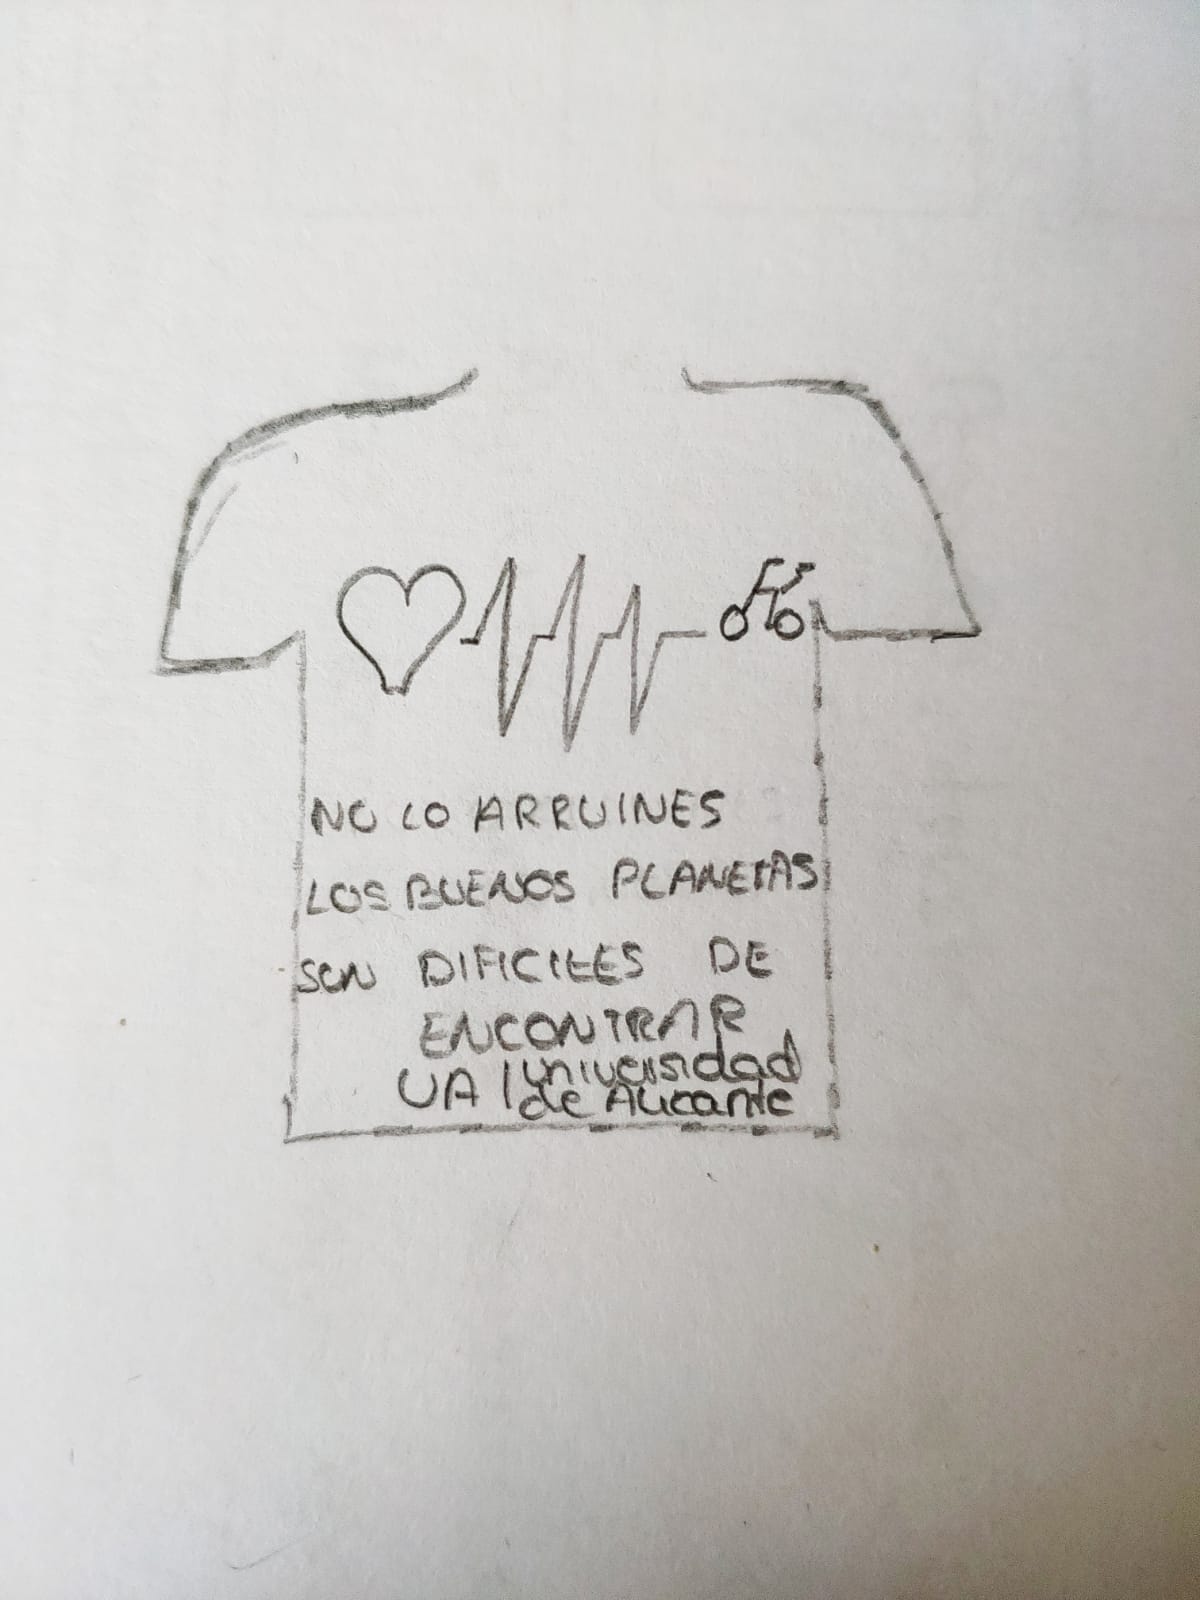 NO LO ARRUINES
LOS BUENOS PLANETAS
SON DIFICILES DE
ENCONTRAR
UA | universidad
de Alicante